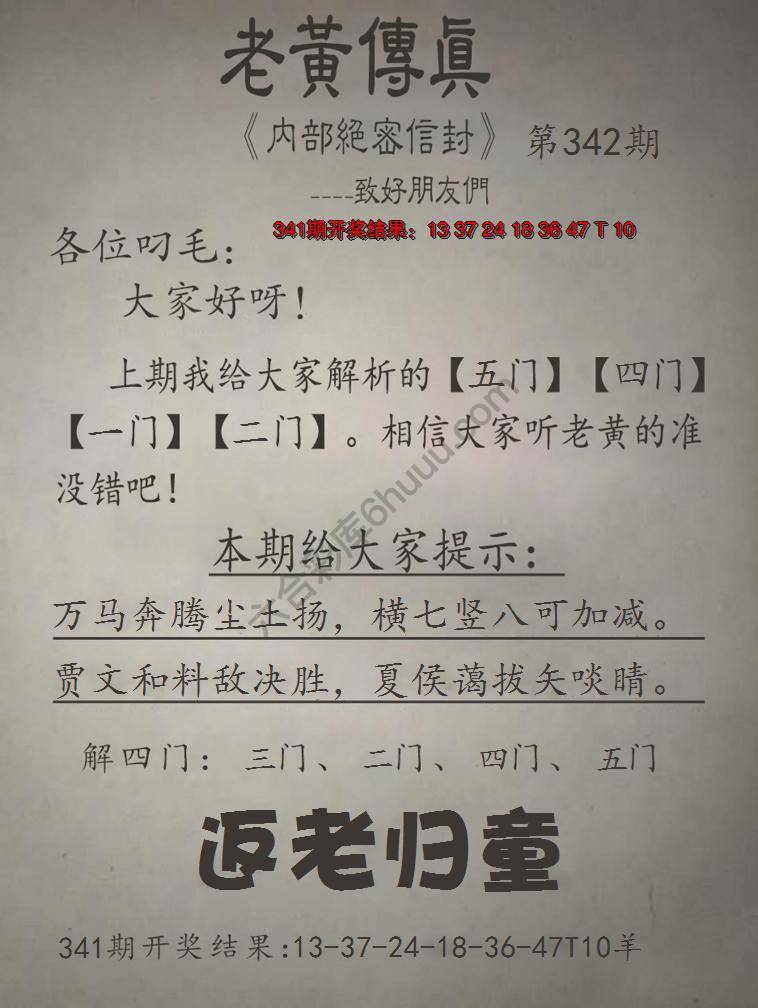 老黃傳眞
《内部絕密信封》 第342期
----致好朋友們
341期开奖结果：13 37 24 18 36 47 T 10
各位叼毛：
大家好呀！
上期我给大家解析的【五门】【四门】
【一门】【二门】。相信大家听老黄的准
没错吧！
本期给大家提示：
万马奔腾尘土扬，横七竖八可加减。
贾文和料敌决胜，夏侯蔼拔矢啖睛。
解四门：三门、二门、四门、五门
返老归童
341期开奖结果:13-37-24-18-36-47T10羊
六合彩库6huuu.com